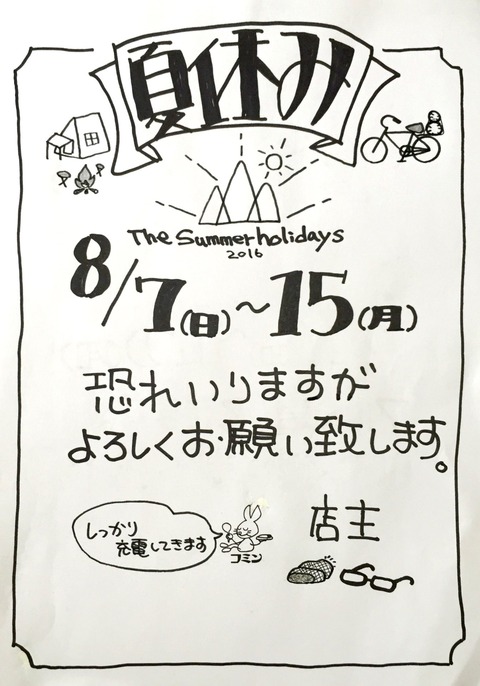 夏休み
The Summer holidays
2016
8/7(日)~15(月)
恐れいりますが
よろしくお願い致します。
しっかり
充電してきます
コミン
店主